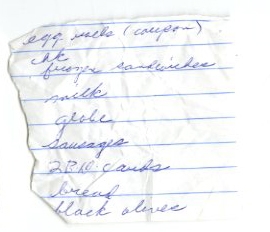 egg rolls (coupon)
chk
frozen sandwiches
milk
globe
sausages
2 BD cards
bread
black olives